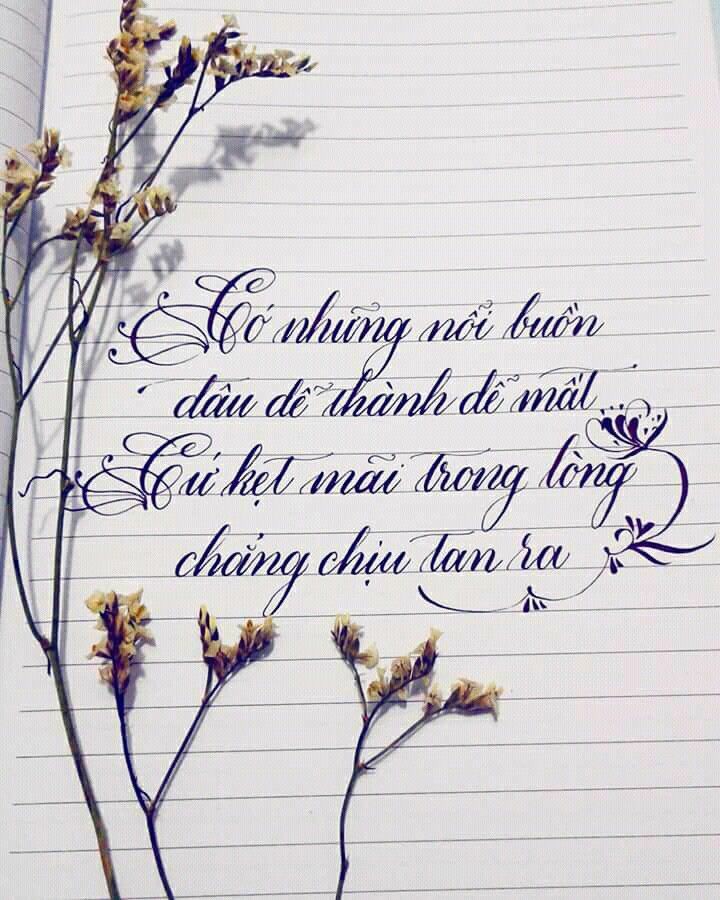 Có những nỗi buồn
dâu dễ thành dễ mất
Cứ kẹt mãi trong lòng
chẳng chịu tan ra